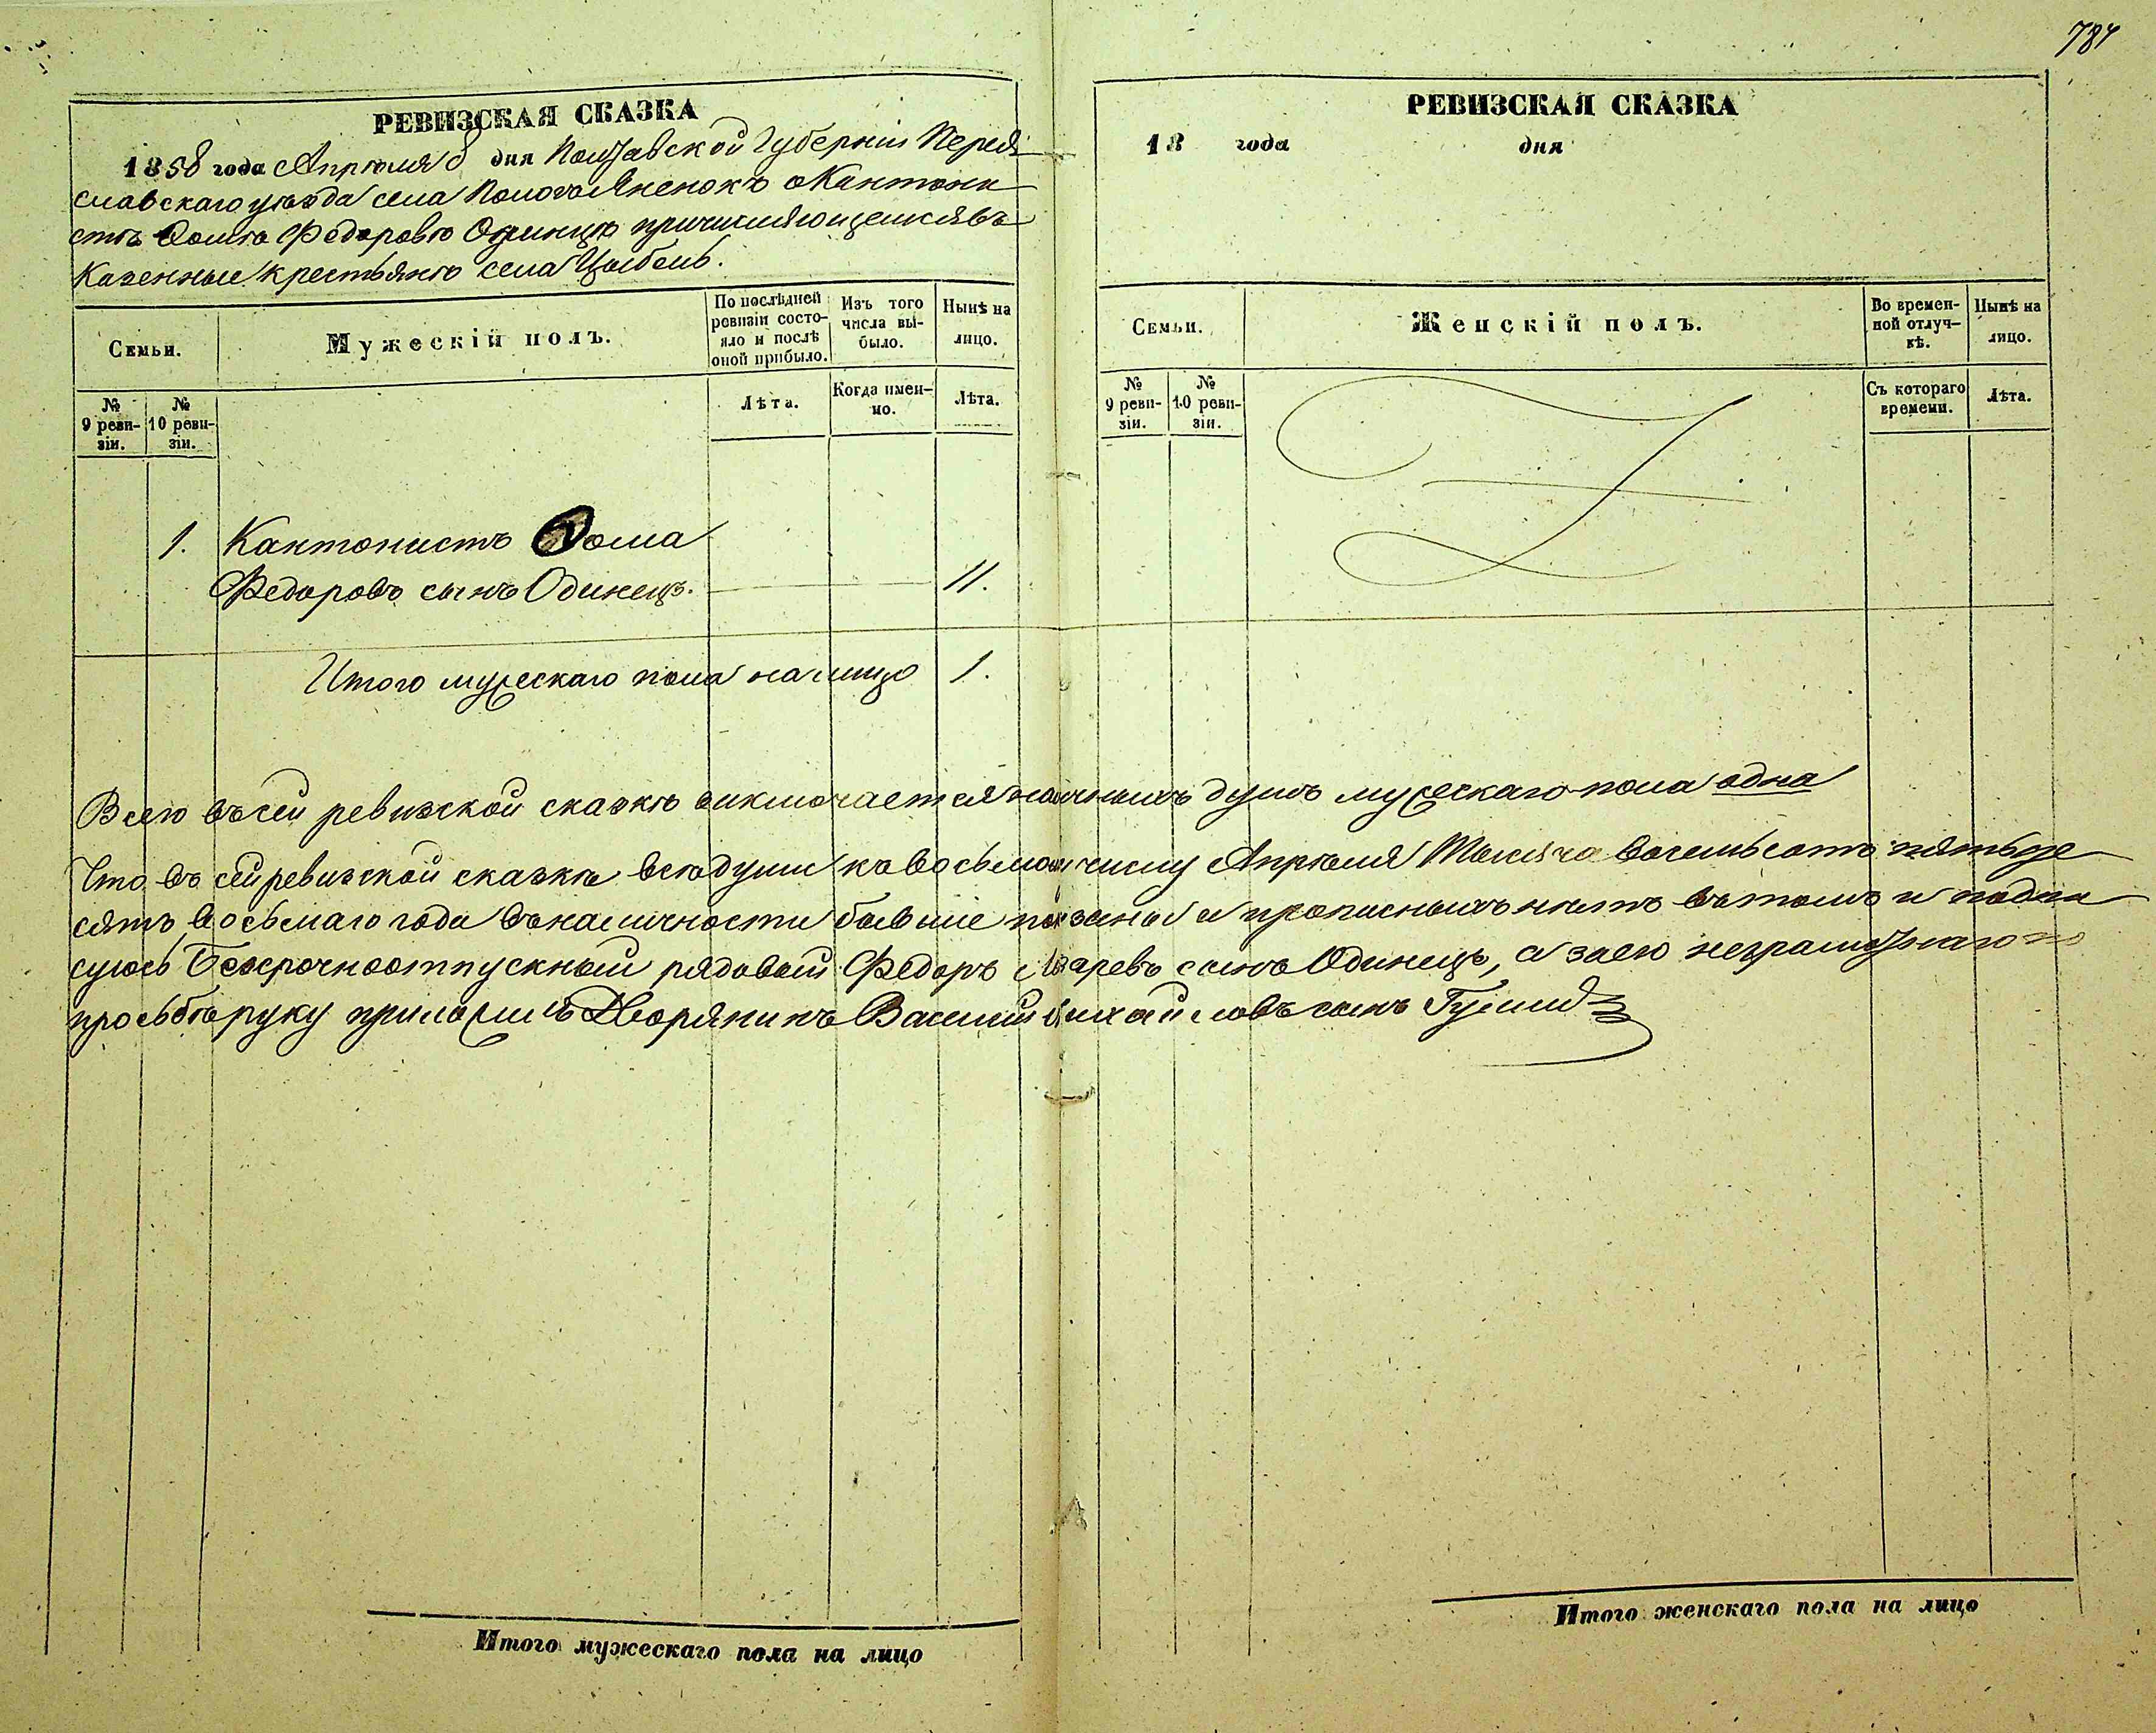 784
РЕВИЗСКАЯ СКАЗКА
1858 года Апрѣля 8 дня Полтавской Губерніи Перея
славскаго уѣзда села Пологъ Яненокъ о Кантони
стѣ Ѳомѣ Федоровѣ Одинцѣ причисляющемся въ
Казенные крестьяне села Цыбель.
Семьи.
Мужескій полъ.
По послѣдней ревизіи состо-
яло и послѣ оной прибыло.
Изъ того числа вы-
было.
Нынѣ на лицо.
№ 9 реви-
зіи.
№ 10 реви-
зіи.
Лѣта.
Когда имен-
но.
Лѣта.
1. Кантонистъ Ѳома
Федоровъ сынъ Одинецъ. 11.
Итого мужескаго пола на лицо 1.
РЕВИЗСКАЯ СКАЗКА
18 года дня
Семьи.
Женскій полъ.
Во времен-
ной отлуч-
кѣ.
Нынѣ на лицо.
№ 9 реви-
зіи.
№ 10 реви-
зіи.
Съ котораго времени.
Лѣта.
Всего въ сей ревизской сказкѣ заключается наличныхъ душъ мужескаго пола одна
Что въ сей ревизской сказкѣ всѣ души къ восьмому числу Апрѣля Тысяча восемьсотъ пятьде
сятъ восьмаго года въ наличности бывшіе показаны и прописныхъ нѣтъ въ томъ и подпи
суюсь Безсрочноотпускный рядовый Федоръ сынъ Одинецъ, а за его неграмотнаго по
прозьбѣ руку приложилъ Дворянинъ Василій Михайловъ сынъ
Итого мужескаго пола на лицо
Итого женскаго пола на лицо